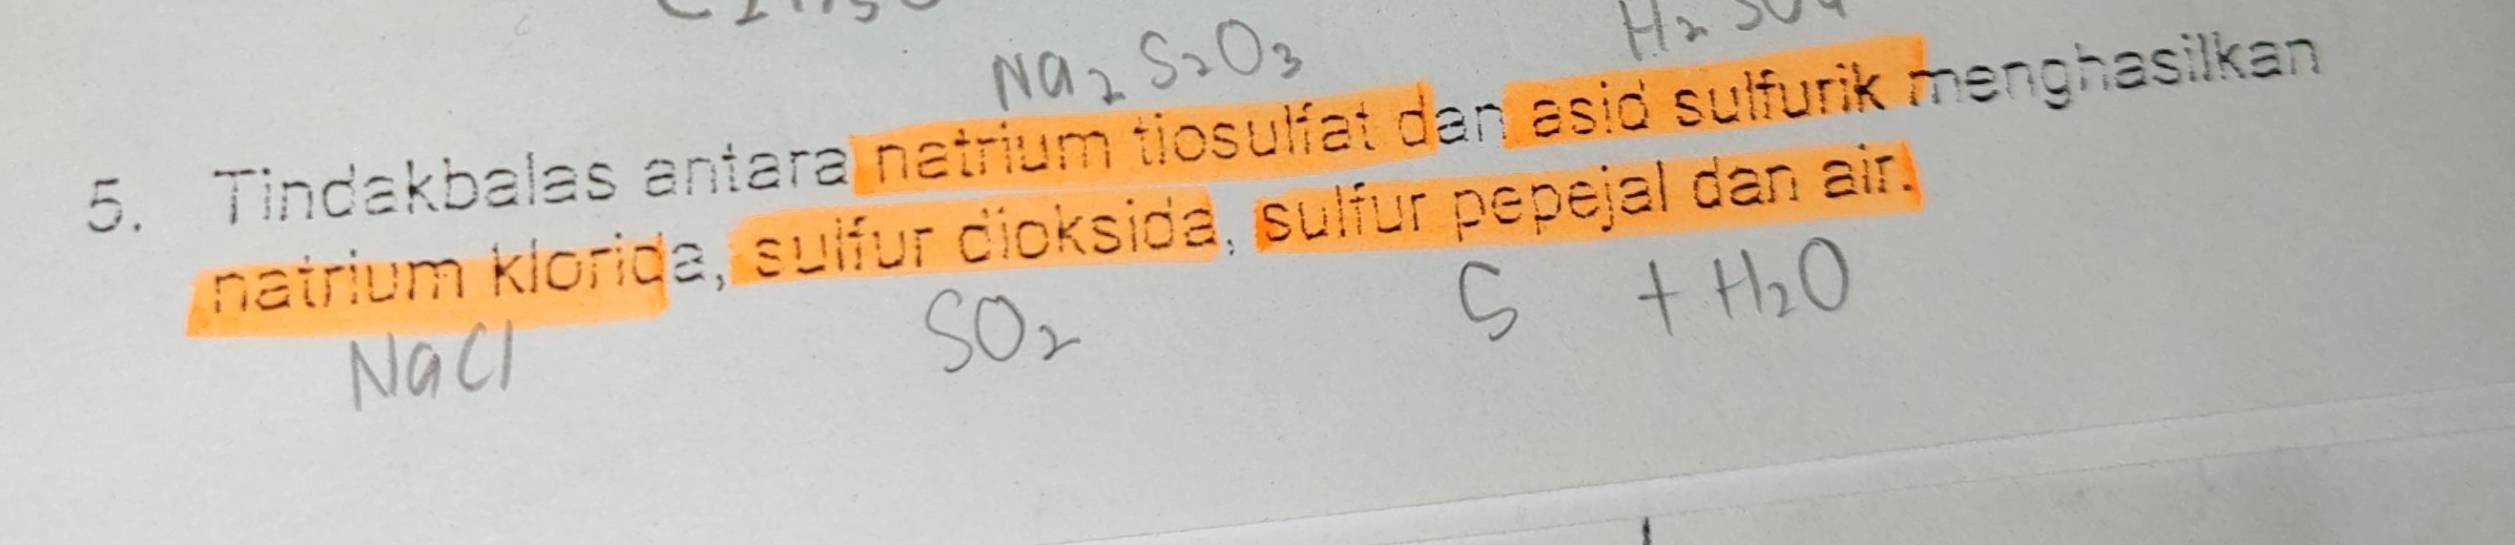 Na2 S2O3 H2 SO4
5. Tindakbalas antara natrium tiosulfat dan asid sulfurik menghasilkan
natrium klorida, sulfur dioksida, sulfur pepejal dan air.
NaCl SO2 S + H2O